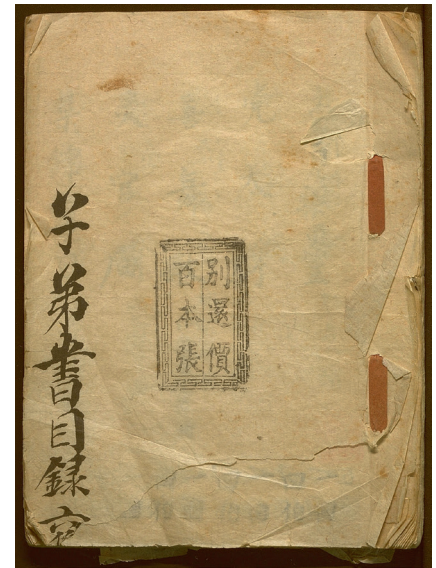 別還價
百本張
子弟書目錄